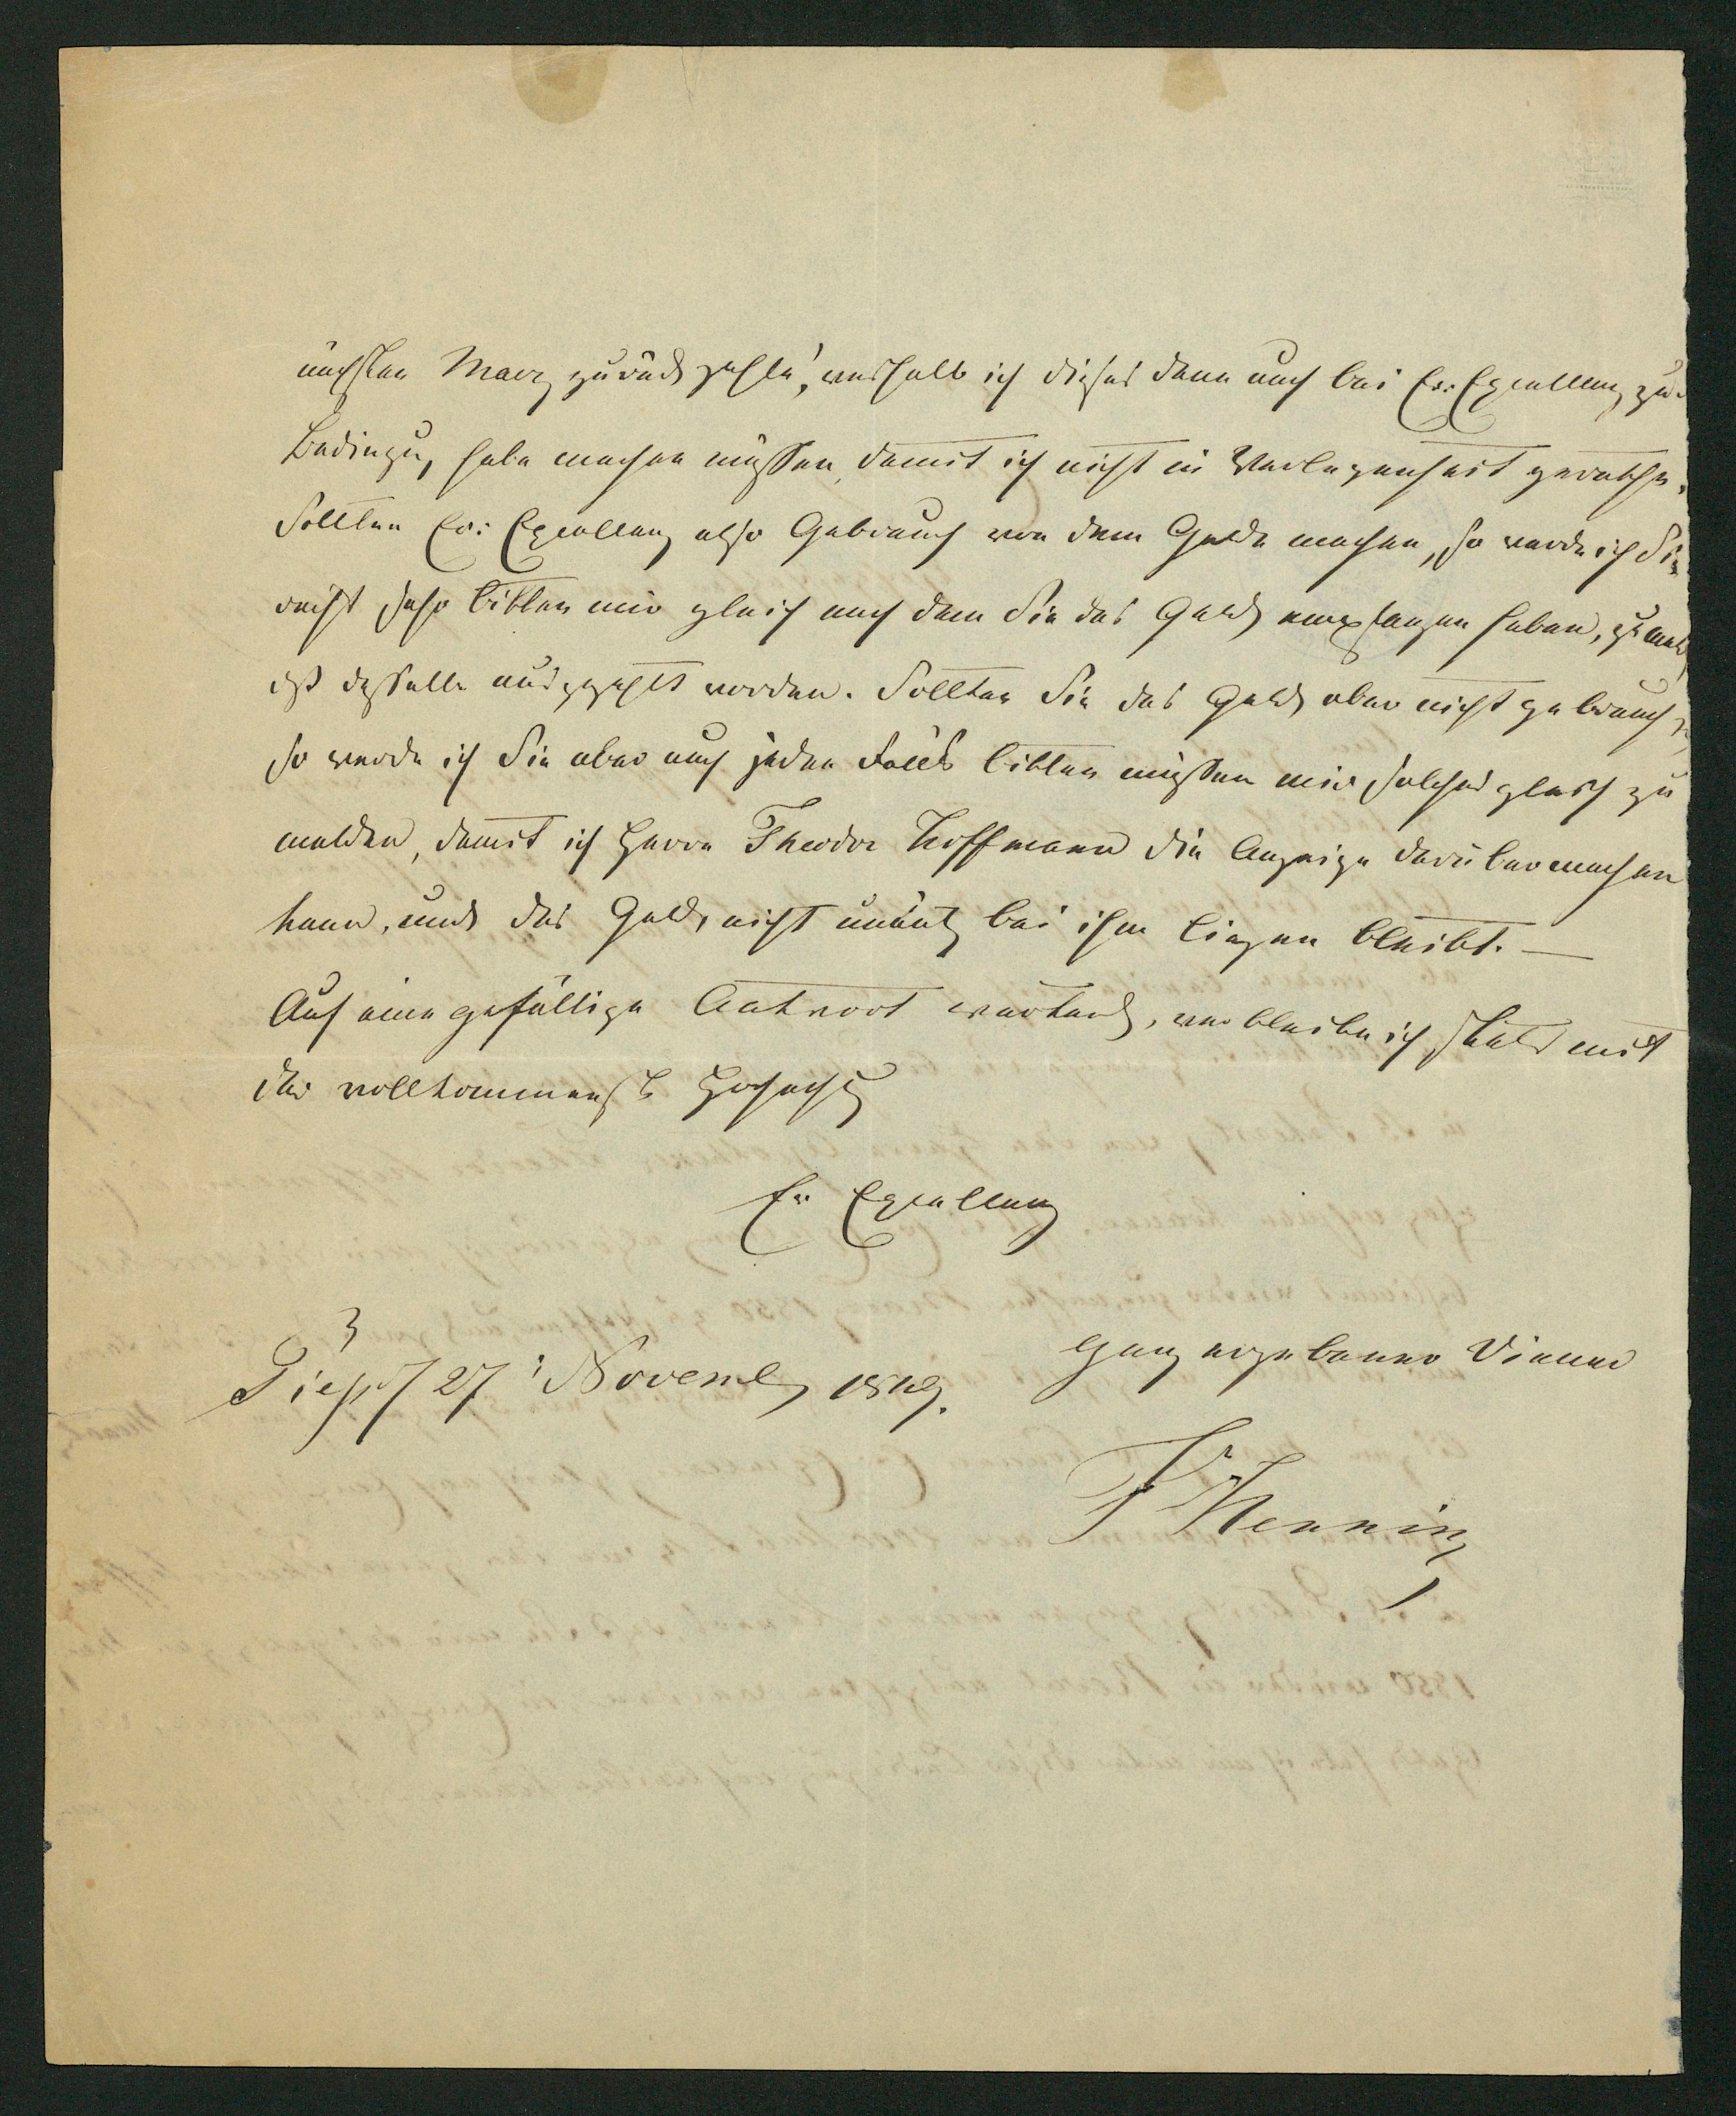 nächsten Maerz zurück zahle, weshalb ich dieses denn auch bei Ew: Excellenz zur
Bedingung habe machen müssen, damit ich nicht in Verlegenheit gerathe.
Sollten Ew: Excellenz also Gebrauch von dem Gelde machen, so werde ich Sie
recht sehr bitten mir gleich nach dem Sie das Geld empfangen haben, zu melden
daß dasselbe ausgezahlt worden. Sollten Sie das Geld aber nicht gebrauchen,
so werde ich Sie aber auch jeden Falls bitten müssen mir solches gleich zu
melden, damit ich Herrn Theodor Hoffmann die Anzeige darüber machen
kann, und das Geld nicht unnütz bei ihm liegen bleibt. —
Auf eine gefällige Antwort wartend, verbleibe ich stets mit
der vollkommenste Hochachtung
Ew Excellenz
ganz ergebener Diener
27 Novembr 1849.
F Hennin